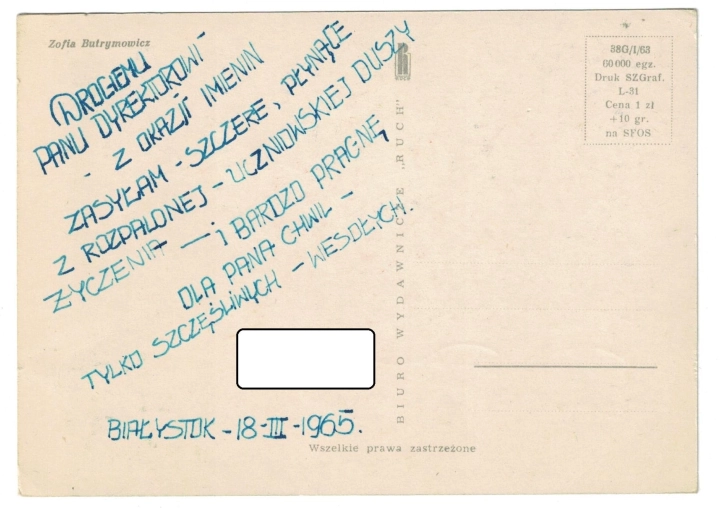 Zofia Butrymowicz
DROGIEMU
PANU DYREKTOROWI
- Z OKAZJI IMIENIN
ZASYŁAM - SZCZERE, PŁYNĄCE
Z ROZPALONEJ - UCZNIOWSKIEJ DUSZY
ŻYCZENIA — I BARDZO PRAGNĘ
DLA PANA CHWIL -
TYLKO SZCZĘŚLIWYCH - WESOŁYCH.
BIAŁYSTOK - 18-III-1965.
BIURO WYDAWNICZE „RUCH"
38G/I/63
60 000 egz.
Druk SZGraf.
L-31
Cena 1 zł
+10 gr.
na SFOS
Wszelkie prawa zastrzeżone